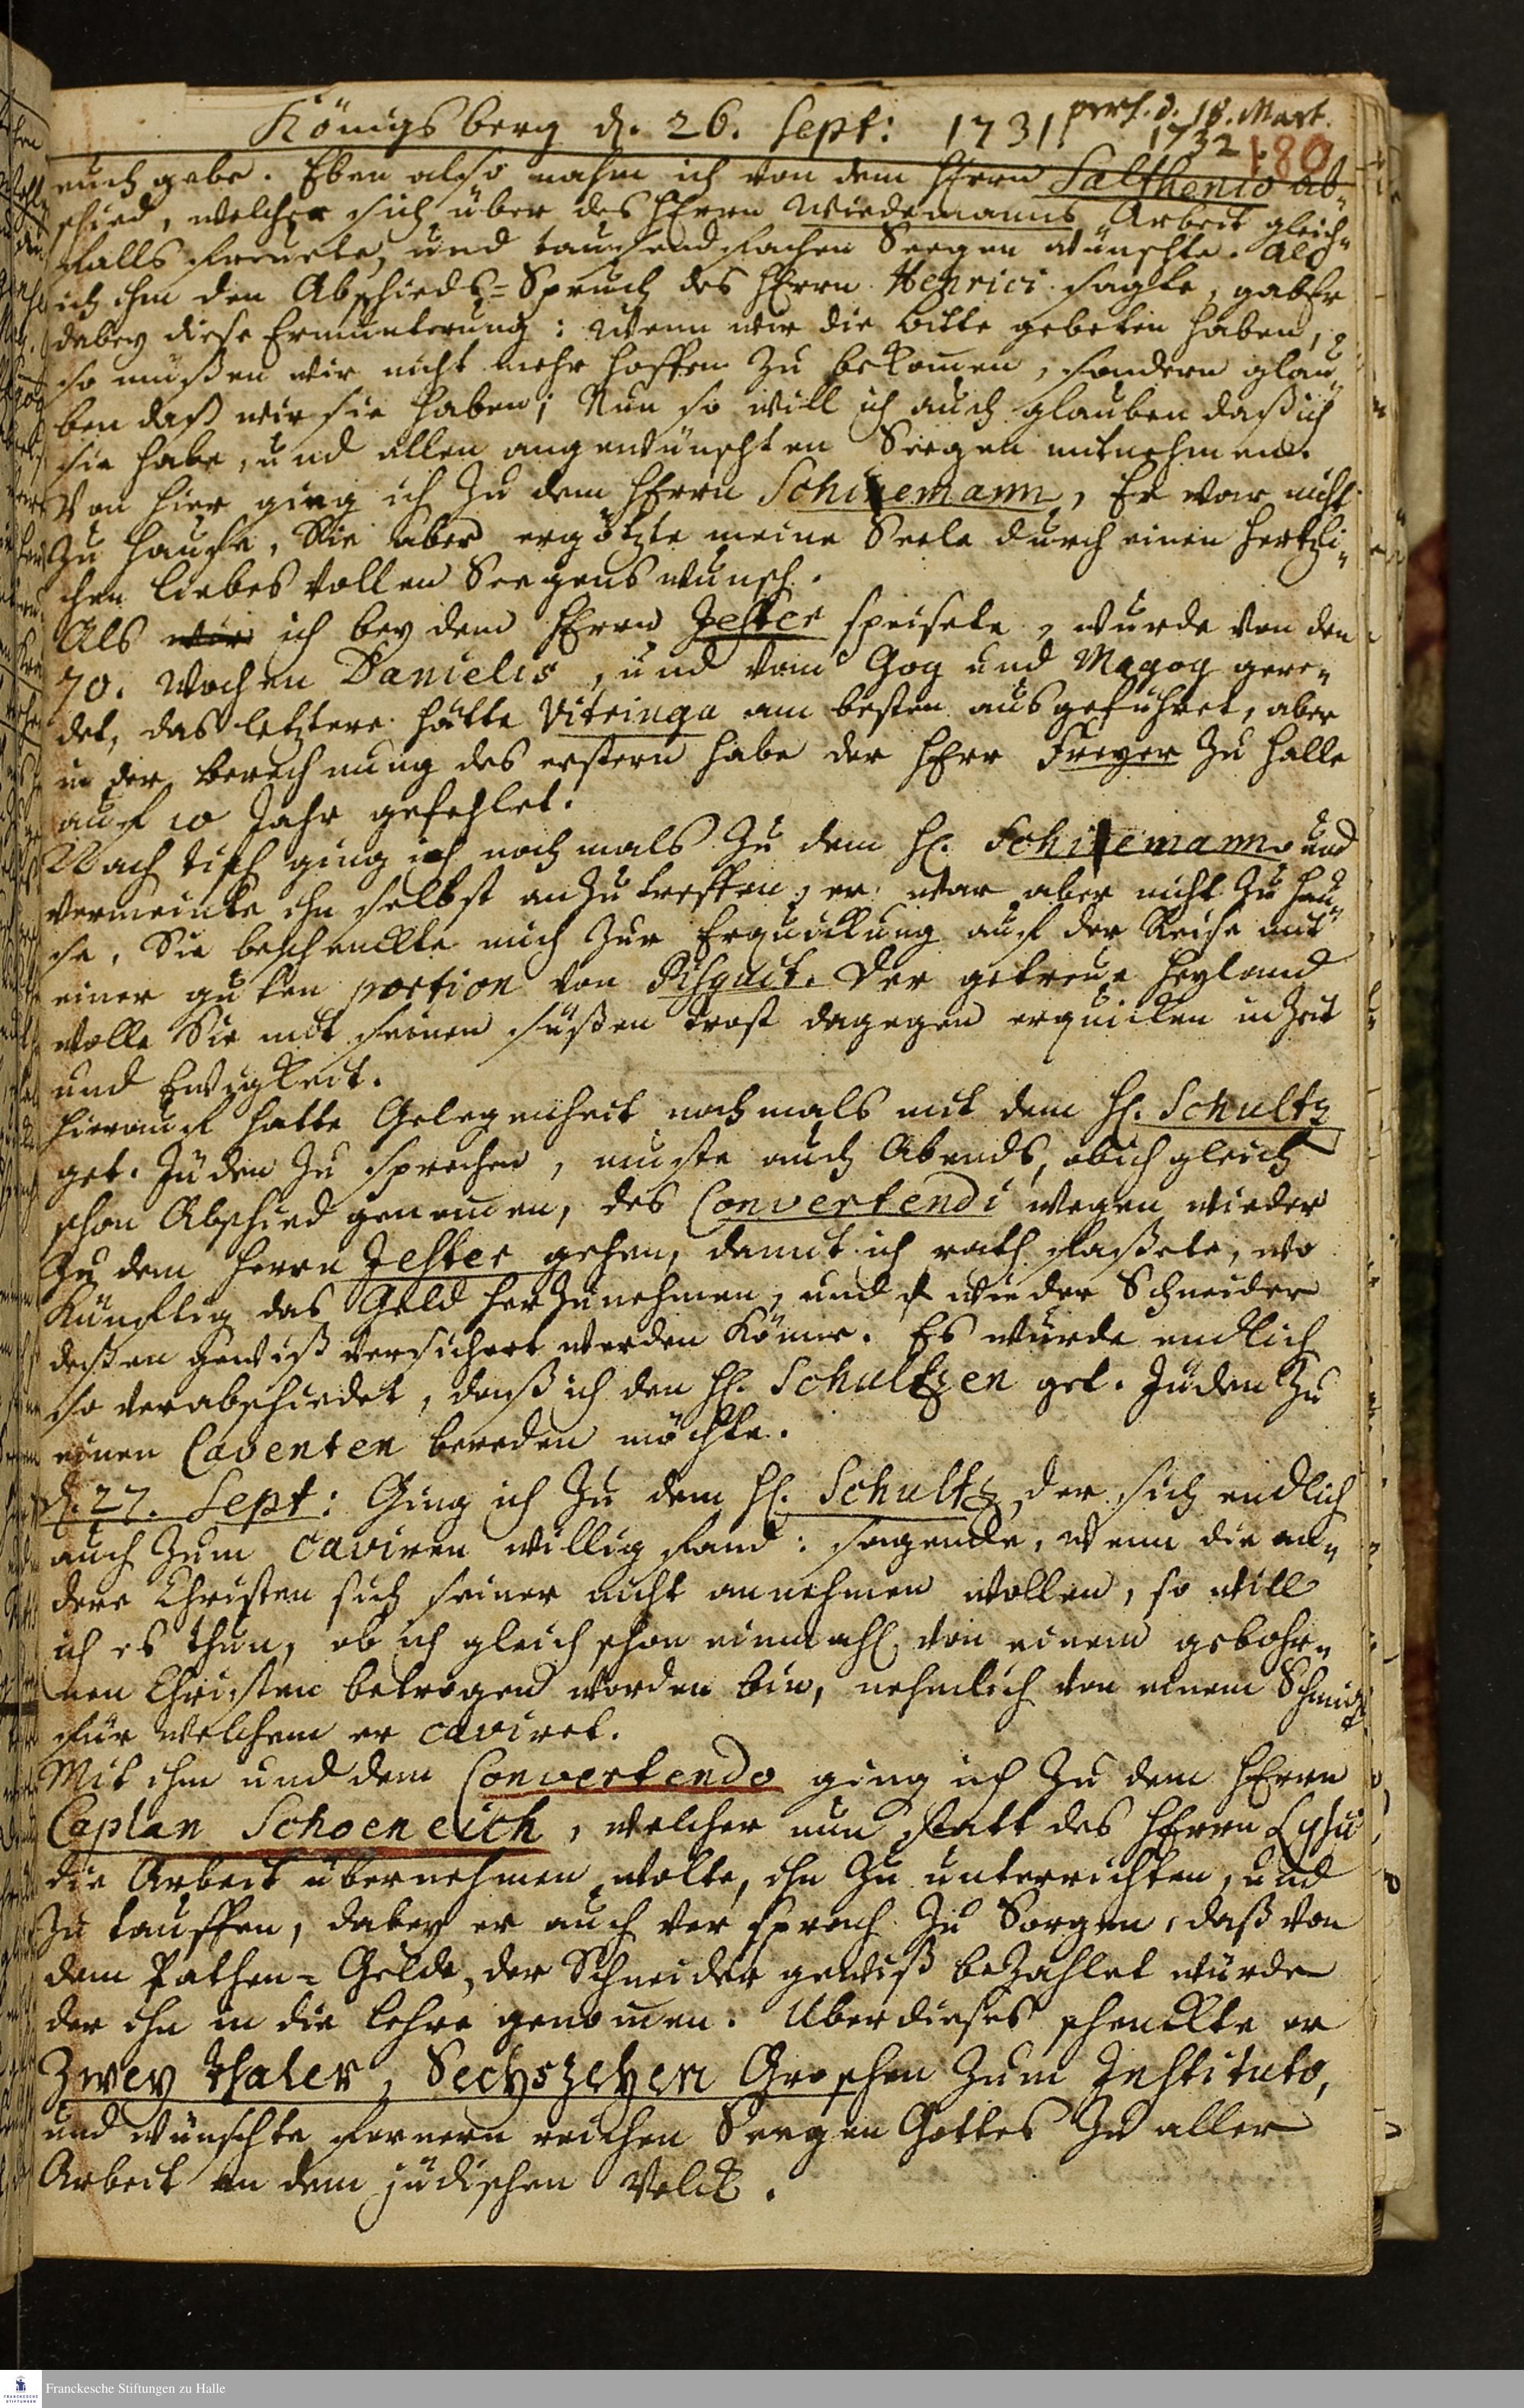 Königsberg d. 26. Sept: 1731. pers. d. 18. Mart.
1732
180
euch gebe. Eben also nahm ich von dem Herrn Salthenio ab-
schied, welcher sich über des Herrn Wiedemanns Arbeit gleich-
falls freuete, und tausendfachen Seegen wünschte. Als
ich ihm den Abschieds-Spruch des Herrn Henrici sagte, gab Er
dabey diese Ermunterung: Wenn wir die bitte gebeten haben,
so müßen wir nicht mehr hoffen zu bekomen, sondern glau-
ben daß wir sie haben; Nun so will ich auch glauben daß ich
sie habe, und allen angewünschten Seegen mitnehmen.
Von hier ging ich zu dem Herrn Schinemann, Er war nicht
zu Hause, Sie aber ergötzte meine Seele durch einen hertzli-
chen liebes vollen Seegenswunsch.
Als wir ich bey dem Herrn Jester speisete, wurde von den
70. Wochen Danielis, und vom Gog und Magog gere-
det, das letztere hätte Vitringa am besten ausgeführet, aber
in der berechnung des erstern habe der Herr Freyer zu Halle
auf 10 Jahr gefehlet.
Nach tisch ging ich nochmals zu dem H. Schinemann und
vermeinte ihn selbst anzutreffen, er war aber nicht zu Hau-
se, Sie beschenckte mich zur Erquickung auf der Reise mit
einer guten portion von Pisquit. Der getreue Heyland
wolle Sie mit seinen süßen trost dagegen erquicken in Zeit
und Ewigkeit.
Hierauf hatte Gelegenheit nochmals mit dem H. Schultz
get. Juden zu sprechen, muste auch Abends, ob ich gleich
schon Abschied genomen, des Convertendi wegen wieder
zu dem Herrn Jester gehen, damit ich rath faßete, wo
künftig das Geld herzunehmen, und wie der Schneider
deßen gewiß versichert werden könne. Es wurde endlich
so verabschiedet, daß ich den H. Schultzen get. Juden zu
einen Caventen bereden möchte.
d. 27. Sept: Ging ich zu dem H. Schultz, der sich endlich
auch zum caviren willig fand: sagende, wenn die an-
dere Christen sich seiner nicht annehmen wollen, so will
ich es thun, ob ich gleich schon einmahl von einem gebohr-
nen Christen betrogen worden bin, nehmlich von einem Schmidt
für welchem er caviret.
Mit ihm und dem Convertendo ging ich zu dem Herrn
Caplan Schoeneich, welcher nun statt des Herrn Lysii
die Arbeit übernehmen wolte, ihn zu unterrichten, und
zu tauffen, dabey er auch versprach zu Sorgen, daß von
dem Pathen-Gelde, der Schneider gewiß bezahlet würde
der ihn in die Lehre genomen. Uberdieses schenckte er
Zwey thaler, Sechszehen Groschen zum Instituto,
und wünschte fernern reichen Seegen Gottes zu aller
Arbeit an dem jüdischen Volck.
Franckesche Stiftungen zu Halle